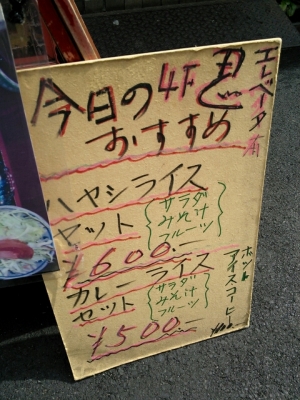 今日の4F
おすすめ
エレベイター有
ハヤシライス
セット
サラダ
みそ汁
フルーツ
¥600.—
カレーライス
セット
サラダ
みそ汁
フルーツ
¥500.—
ホット
アイスコーヒー